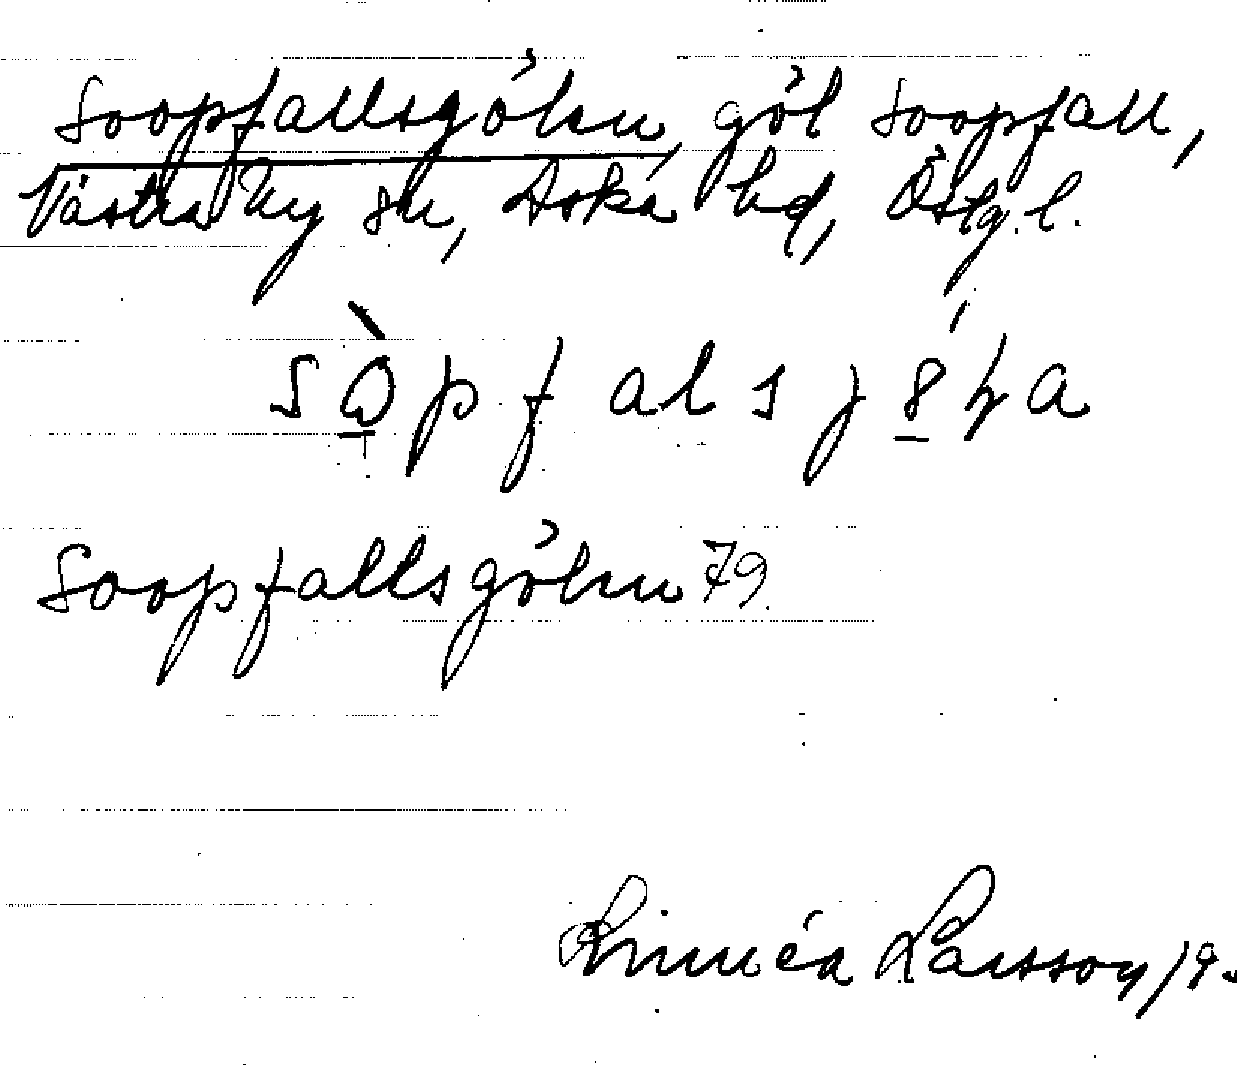 Soopfallsgölen, göl Soopfall,
Västra Ny sn, Aska hd, Östg. l.
Soopfallsgölen 79.
Linnéa Larsson, 19